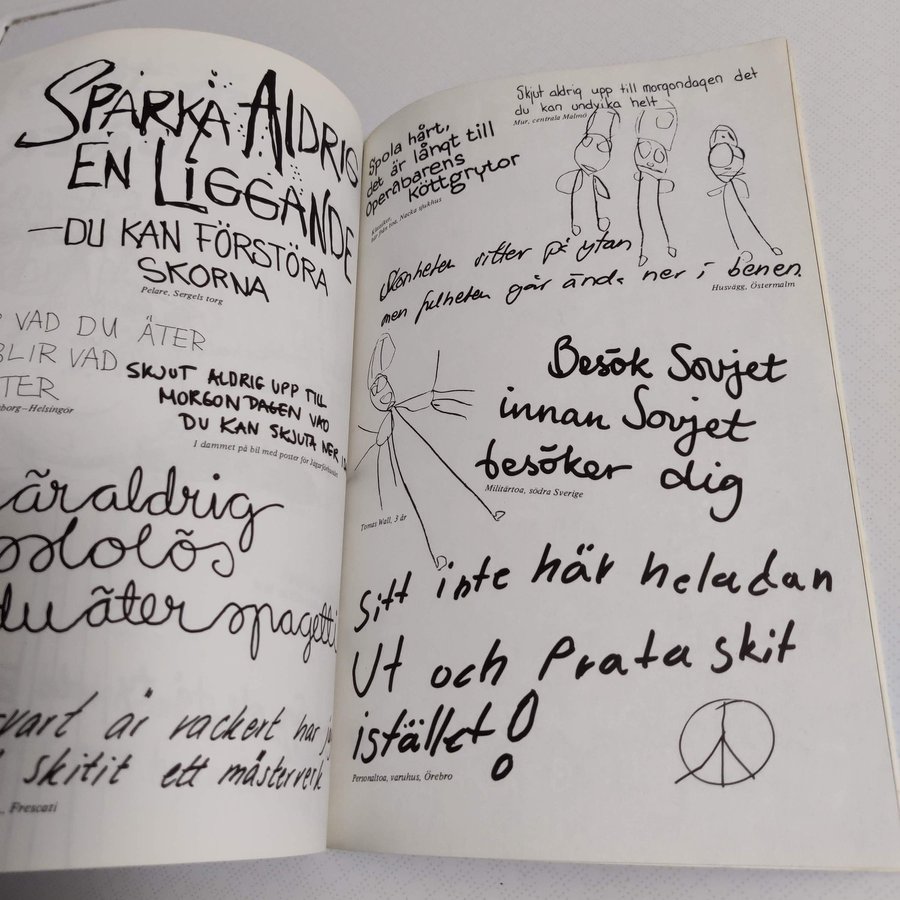 SPARKA ALDRIG
EN LIGGANDE
—DU KAN FÖRSTÖRA
SKORNA
Pelare, Sergels torg
VAD DU ÄTER
BLIR VAD
TER
borg—Helsingör
SKJUT ALDRIG UPP TILL
MORGONDAGEN VAD
DU KAN SKJUTA NER I
I dammet på bil med poster för Jägarförbundet
är aldrig
du äter spagetti
vart är vackert har
skitit ett mästerverk
Frescati
Spola hårt,
det är långt till
Operabarens
köttgrytor
Klassiker,
här från toa, Nacka sjukhus
Skjut aldrig upp till morgondagen det
du kan undvika helt
Mur, centrala Malmö
Skönheten sitter på ytan
men fulheten går ända ner i benen.
Husvägg, Östermalm
Besök Sovjet
innan Sovjet
besöker dig
Militärtoa, södra Sverige
Tomas Wall, 3 år
Sitt inte här heladan
Ut och Prata skit
istället!
Personaltoa, varuhus, Örebro